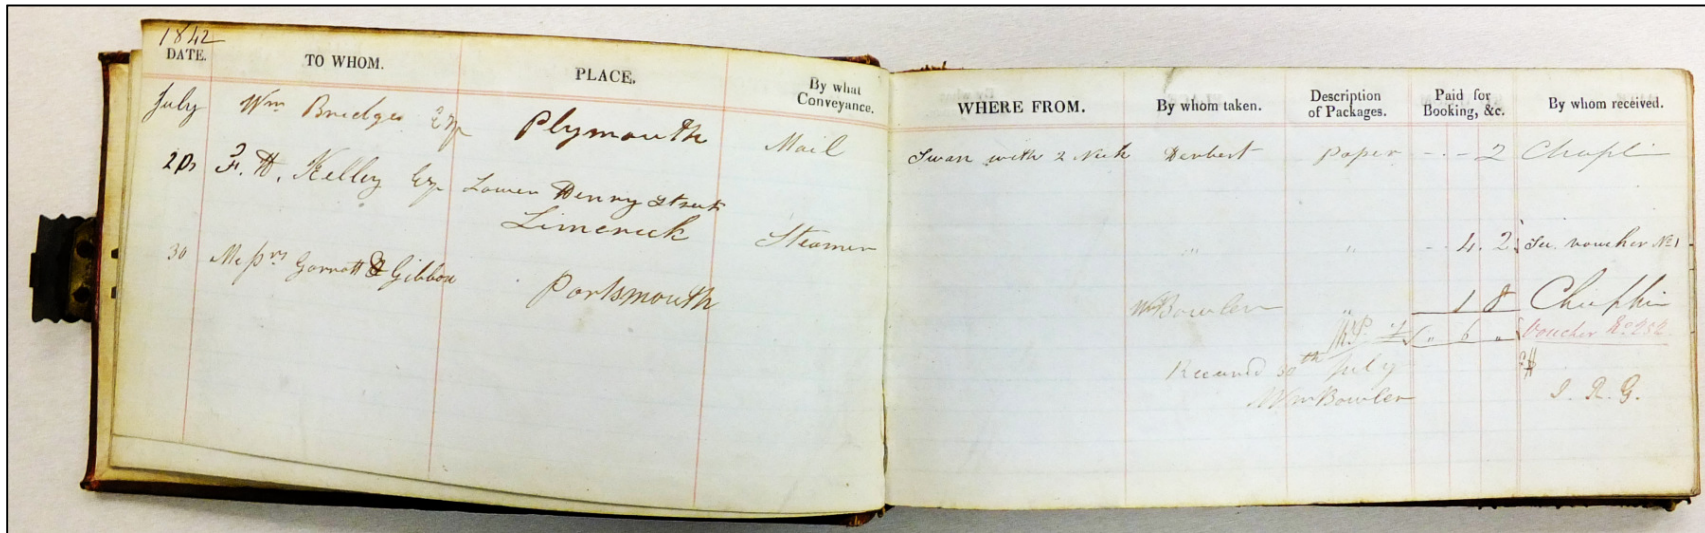 1842
DATE. TO WHOM. PLACE. By what Conveyance. WHERE FROM. By whom taken. Description of Packages. Paid for Booking, &c. By whom received.
July Wm Bridges Esq Plymouth Mail Swan with 2 Neck Herbert Paper - - 2 Chaplin
F. H. Kelley Esq Lower Henry Street
Limerick Steamer " " - 4. 2 See voucher No 1
30 Messrs Garratt & Gibbon Portsmouth Wm Bowler " 1 8 Chaplin
" 6 " Voucher No 252
Received 30th July
Wm Bowler J. R. G.